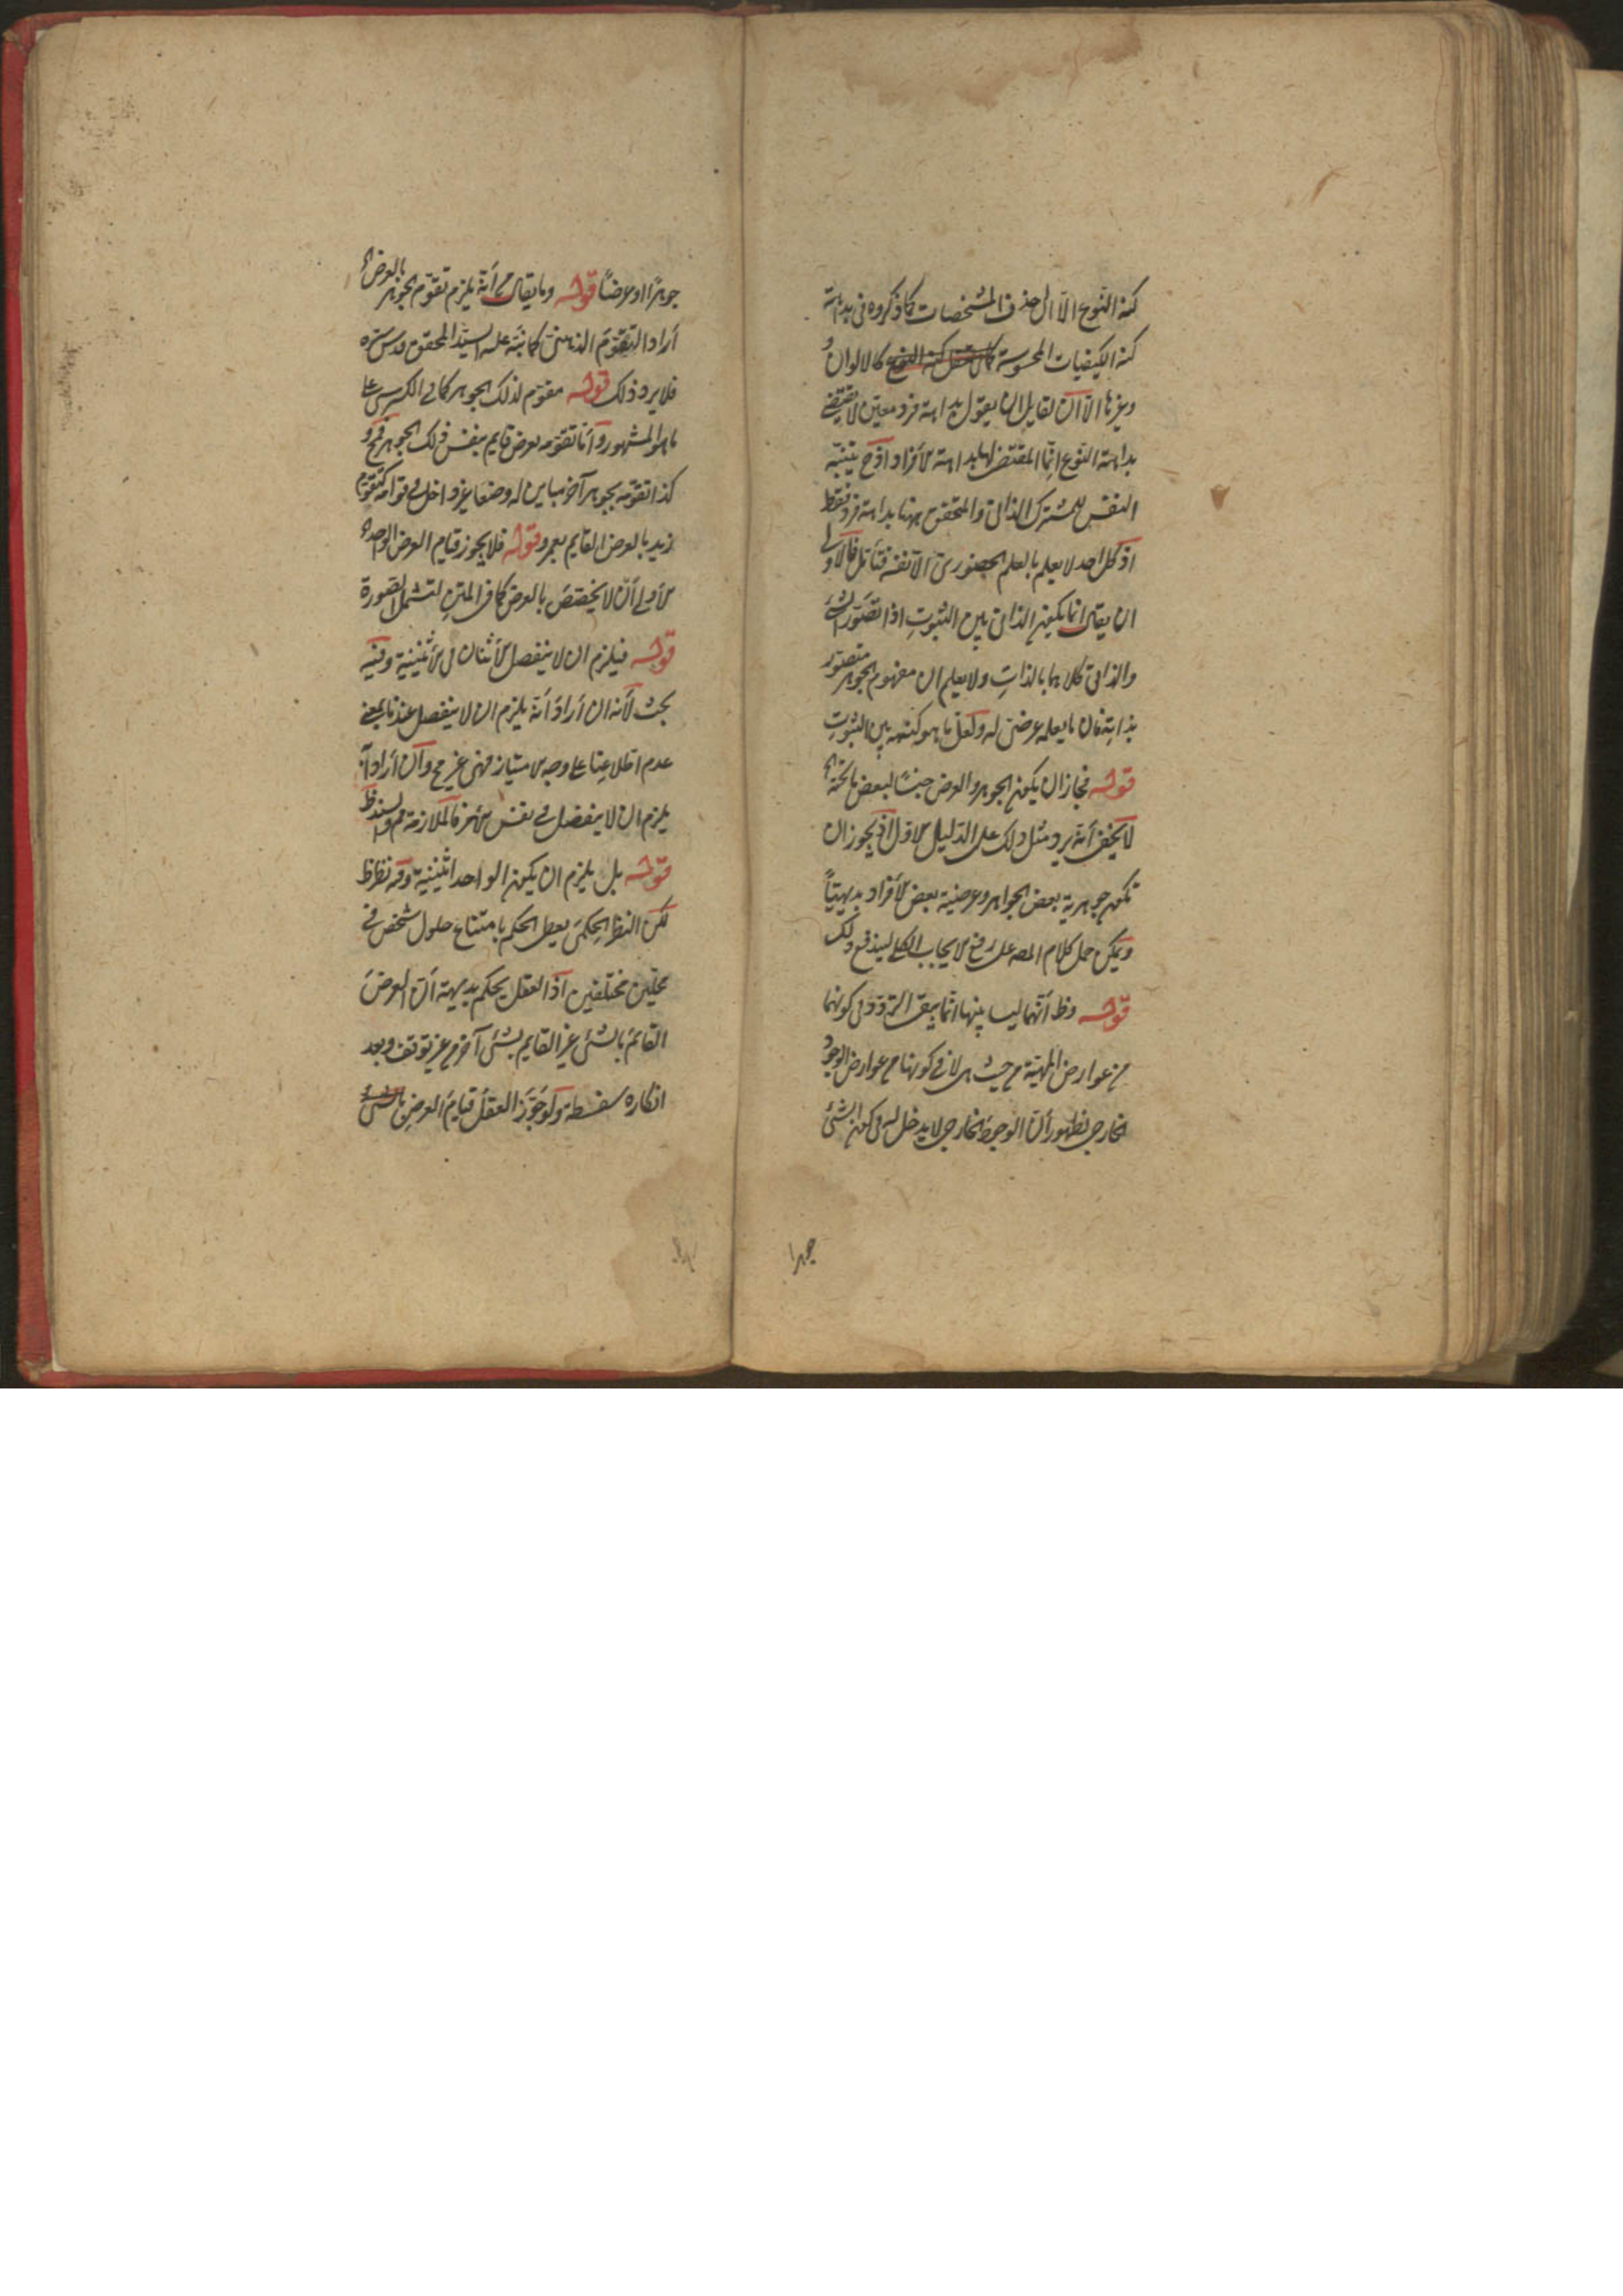 كنه النوع الا الى حذف المشخصات كما ذكروه فى بداهة
كنه الكيفيات المحسوسة كالالوان و
وغيرها الا ان لقايل ان يقول بداهة فرد معين لا يقتضى
بداهة النوع انما المقتضى لها بداهة الأفراد اذ ح يتنبه
النفس للمشترك الذاتى والمتحقق ههنا بداهة فرد فقط
اذ كل احد لا يعلم بالعلم الحضورى الا نفسه فتأمل فالأولى
ان يقال انما يكون الذاتى بين الثبوت اذا تصور الشئ
والذاتى كلاهما بالذات ولا يعلم ان مفهوم الجوهر متصور
بذاته فان ما يعلم عرضى له ولعل ما هو كنهه بين الثبوت
قوله فجاز ان يكون الجوهر والعرض جنسًا لبعض ما تحته
لا يخفى أنه يرد مثل ذلك على الدليل الاول اذ يجوز ان
تكون جوهرية بعض الجواهر وعرضية بعض الأفراد بديهيًا
ويمكن حمل كلام المصه على رفع الايجاب الكلى ليندفع ذلك
قوله وظ أنهما ليسا بينها انما يبقى التردد فى كونهما
من عوارض المهية من حيث هى لا فى كونها من عوارض الوجود
الخارجى لظهور أن الوجود الخارجى لا يدخل له فى كون الشئ
جوهرا
جوهرًا او عرضًا قوله وما يقال من أنه يلزم تقوم الجوهر بالعرض
أراد التقوم الذهنى كما نبّه عليه السيد المحقق قدس سره
فلا يرد ذلك قوله مقوم لذلك الجوهر كما فى الكرسى على
ما هو المشهور وأما تقومه بعرض قايم بنفس ذلك الجوهر فمح و
كذا تقومه بجوهر آخر مباين له وضعا غير داخل فى قوامه كتقوم
زيد بالعرض القايم بعمرو قوله فلا يجوز قيام العرض الواحد
الأولى أن لا يختص بالعرض كما فى المتن لتشمل الصورة
قوله فيلزم ان لا ينفصل الأثنان فى الأثنينية وفيه
بحث لأنه ان أراد أنه يلزم ان لا ينفصل عندنا بمعنى
عدم اطلاعنا على وجه الامتياز فهى غير مح وان أراد أنه
يلزم ان لا ينفصل فى نفس الأمر فالملازمة مم والسند ظ
قوله بل يلزم ان يكون الواحد اثنينية وفيه نظر ظ
لكن النظر الحكمى يعطى الحكم بامتناع حلول شخص فى
محلين مختلفين اذ العقل يحكم بديهة أن العرض
القائم بالشئ غير القايم بشئ آخر من غير توقف ويعد
انكاره سفسطة ولو جوز العقل قيام العرض بالشئ